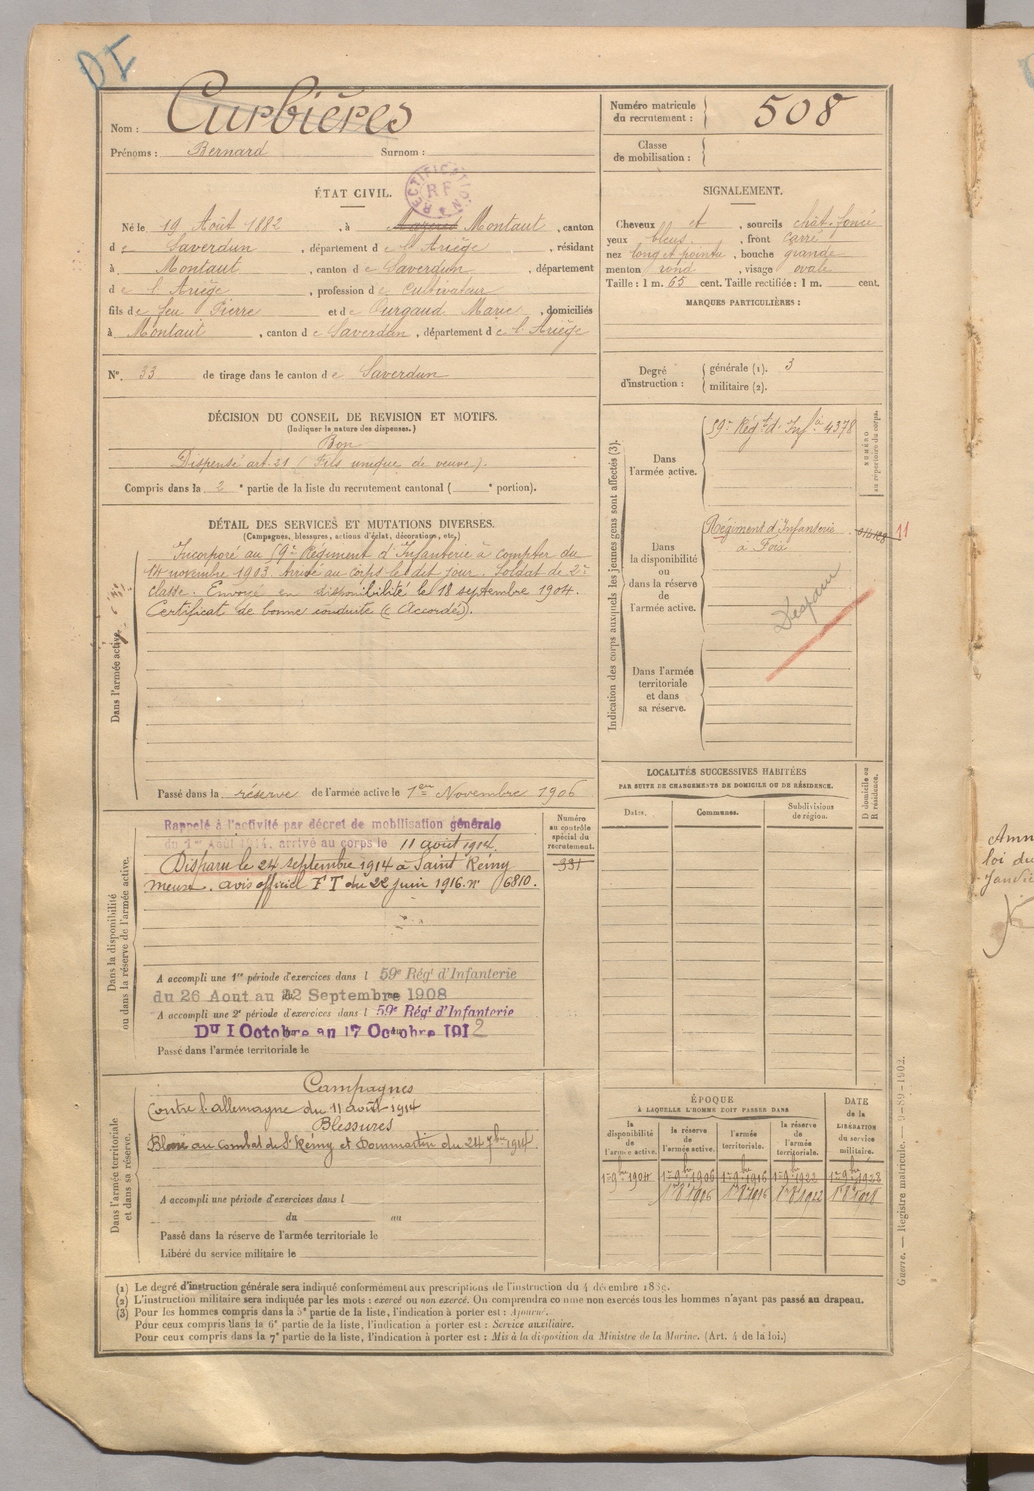 DI
Nom : Curbières
Prénoms : Bernard Surnom :
Numéro matricule du recrutement : 508
Classe de mobilisation :
ÉTAT CIVIL.
RECTIFICATION RF
Né le 19 Août 1882, à Mazères Montaut, canton
de Saverdun, département de l'Ariège, résidant
à Montaut, canton de Saverdun, département
de l'Ariège, profession de Cultivateur
fils de feu Pierre et de Ourgaud Marie, domiciliés
à Montaut, canton de Saverdun, département de l'Ariège
N° 33 de tirage dans le canton de Saverdun
SIGNALEMENT.
Cheveux et, sourcils chât. foncé
yeux bleus, front carré
nez long et pointu, bouche grande
menton rond, visage ovale
Taille : 1 m. 65 cent. Taille rectifiée : 1 m. cent.
MARQUES PARTICULIÈRES :
Degré d'instruction : générale (1). 3
militaire (2).
DÉCISION DU CONSEIL DE REVISION ET MOTIFS.
(Indiquer la nature des dispenses.)
Bon
Dispensé art. 21 (Fils unique de veuve).
Compris dans la 2e partie de la liste du recrutement cantonal ( e portion).
DÉTAIL DES SERVICES ET MUTATIONS DIVERSES.
(Campagnes, blessures, actions d'éclat, décorations, etc.)
Dans l'armée active.
Incorporé au 59e Régiment d'Infanterie à compter du
14 novembre 1903 Arrivé au corps le dit jour. Soldat de 2e
classe. Envoyé en disponibilité le 18 septembre 1904.
Certificat de bonne conduite (Accordé).
Passé dans la réserve de l'armée active le 1er Novembre 1906
Indication des corps auxquels les jeunes gens sont affectés (3).
NUMÉRO au répertoire du corps.
Dans l'armée active.
59e Régt d'Infie 4378
Dans la disponibilité ou dans la réserve de l'armée active.
Régiment d'Infanterie
à Foix
11
Disparu
Dans l'armée territoriale et dans sa réserve.
LOCALITÉS SUCCESSIVES HABITÉES
PAR SUITE DE CHANGEMENTS DE DOMICILE OU DE RÉSIDENCE.
Dates.
Communes.
Subdivisions de région.
D domicile ou R résidence.
Dans la disponibilité ou dans la réserve de l'armée active.
Numéro au contrôle spécial du recrutement.
331
Rappelé à l'activité par décret de mobilisation générale
du 1er Août 1914, arrivé au corps le 11 août 1914.
Disparu le 24 septembre 1914 à Saint Rémy
meuse. avis officiel F T du 22 juin 1916. n° 6810.
A accompli une 1re période d'exercices dans l 59e Régt d'Infanterie
du 26 Aout au 22 Septembre 1908
A accompli une 2e période d'exercices dans l 59e Régt d'Infanterie
Du 1 Octobre au 17 Octobre 1912
Passé dans l'armée territoriale le
Dans l'armée territoriale et dans sa réserve.
Campagnes
Contre l'allemagne du 11 août 1914
Blessures
Blessé au combat de St Rémy et Dommartin du 24 7bre 1914.
A accompli une période d'exercices dans l
du au
Passé dans la réserve de l'armée territoriale le
Libéré du service militaire le
ÉPOQUE
À LAQUELLE L'HOMME DOIT PASSER DANS
la disponibilité de l'armée active.
la réserve de l'armée active.
l'armée territoriale.
la réserve de l'armée territoriale.
DATE de la LIBÉRATION du service militaire.
1er 9bre 1904 1er 9bre 1906 1er 9bre 1916 1er 9bre 1922 1er 9bre 1928
1er 8 1906 1er 8 1916 1er 8 1922 1er 8 1928
(1) Le degré d'instruction générale sera indiqué conformément aux prescriptions de l'instruction du 4 décembre 1889.
(2) L'instruction militaire sera indiquée par les mots : exercé ou non exercé. On comprendra comme non exercés tous les hommes n'ayant pas passé au drapeau.
(3) Pour les hommes compris dans la 5e partie de la liste, l'indication à porter est : Ajourné.
Pour ceux compris dans la 6e partie de la liste, l'indication à porter est : Service auxiliaire.
Pour ceux compris dans la 7e partie de la liste, l'indication à porter est : Mis à la disposition du Ministre de la Marine. (Art. 4 de la loi.)
Guerre. — Registre matricule. — 9-89-1902.
Amn
loi du
Janvie